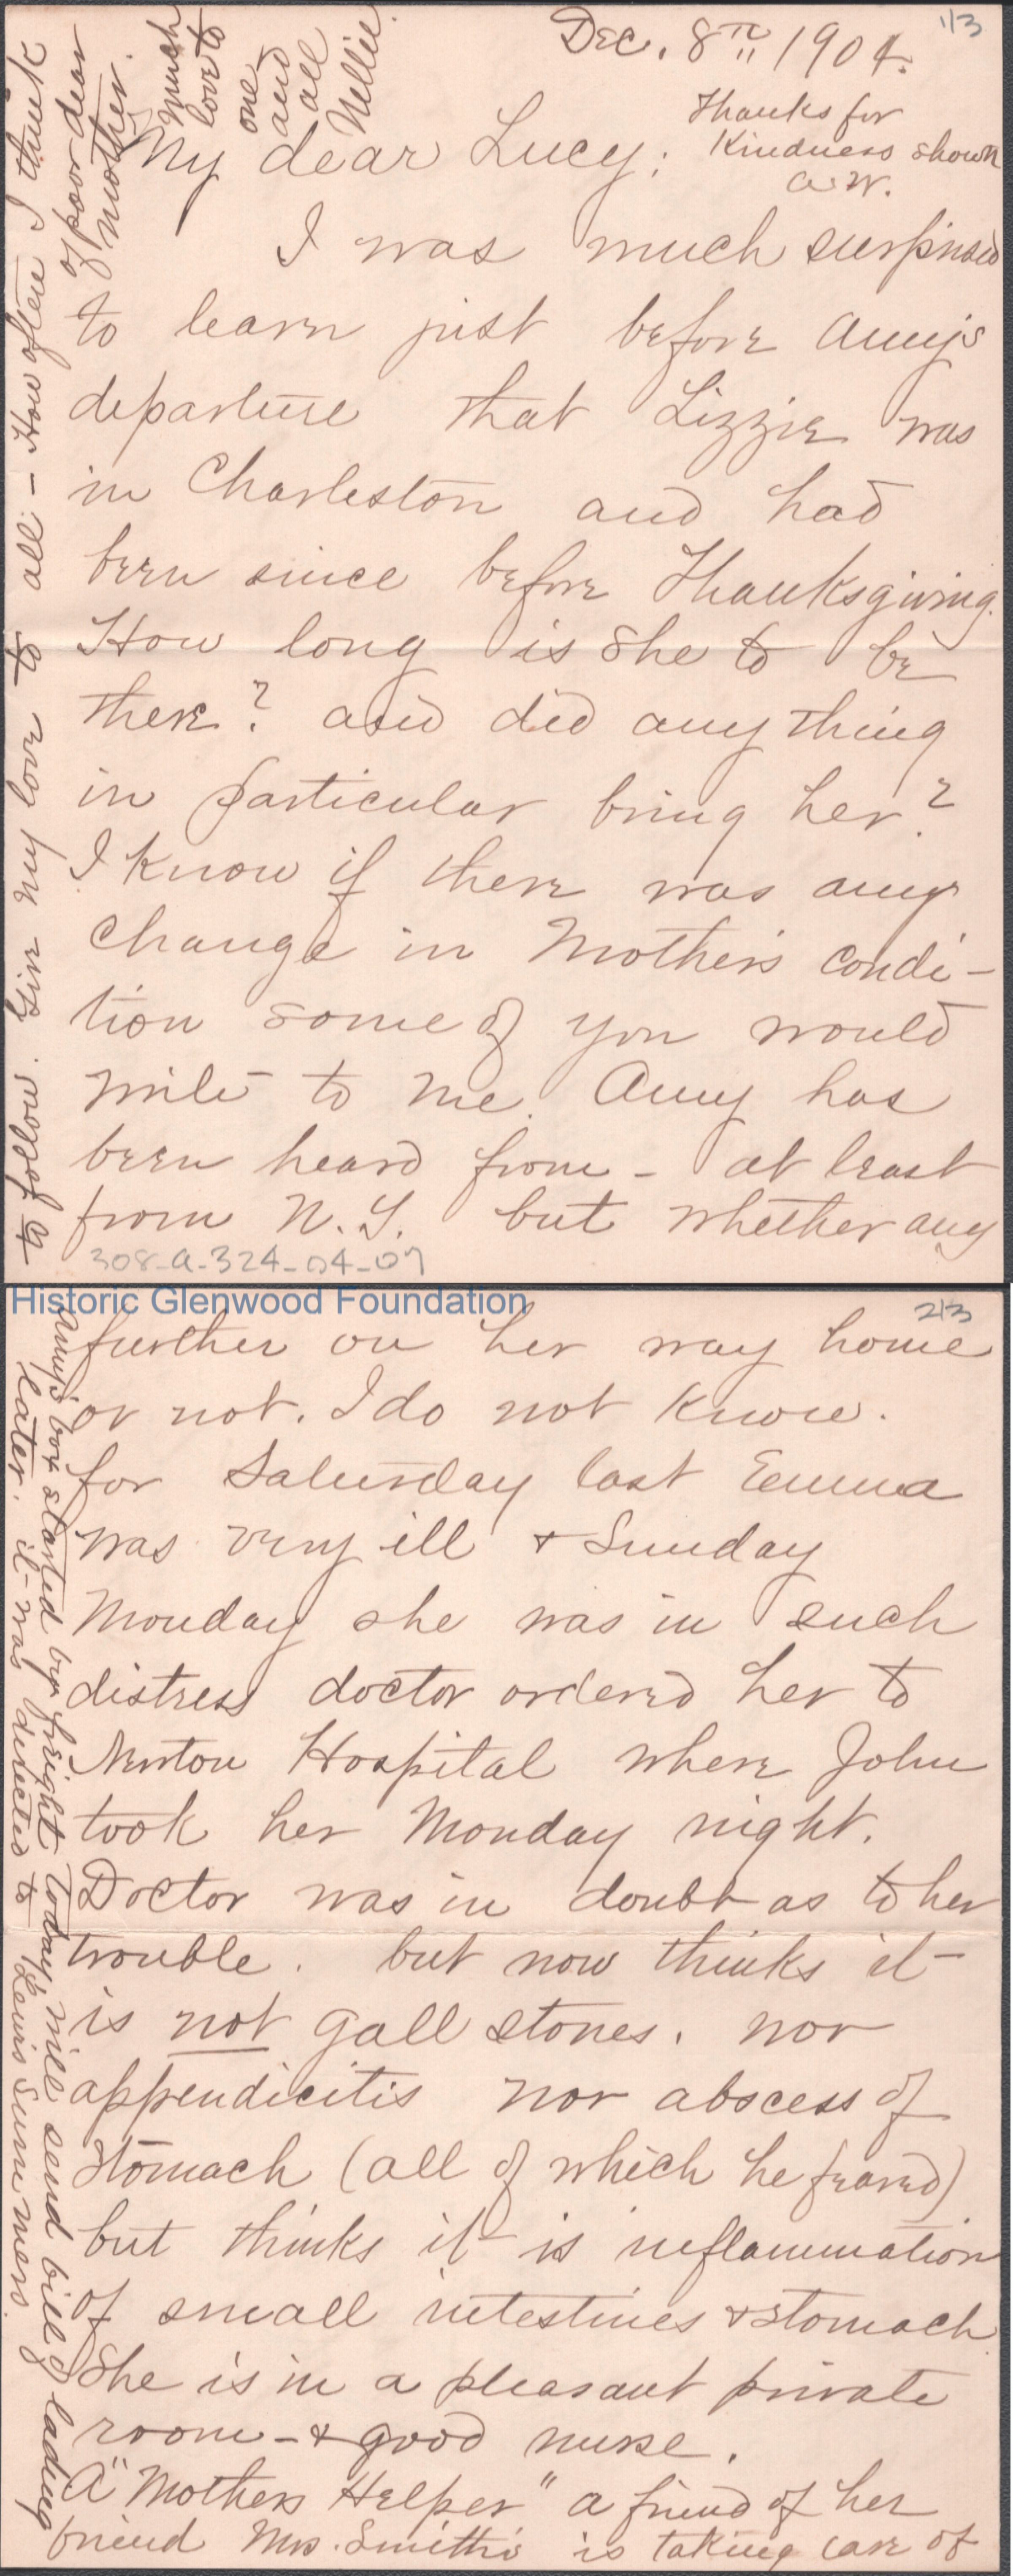 1/3
Dec. 8th 1904.
Thanks for
Kindness shown
A.W.
My dear Lucy;
I was much surprised
to learn just before Amy's
departure that Lizzie was
in Charleston and had
been since before Thanksgiving.
How long is she to be
there? and did any thing
in particular bring her?
I know if there was any
change in Mother's condi-
tion some of you would
write to me. Amy has
been heard from - at least
from N.Y. but whether any
308-a-324-04-07
to follow. Give my love to all - How often I think
of poor dear
mother.
Much
love to
one
and
all
Nellie.
Historic Glenwood Foundation
2/3
further on her way home
or not. I do not know.
for Saturday last Emma
was very ill & Sunday
Monday she was in such
distress doctor ordered her to
Newton Hospital where John
took her Monday night.
Doctor was in doubt as to her
trouble. but now thinks it
is not gall stones. nor
appendicitis nor abscess of
stomach (all of which he feared)
but thinks it is inflammation
of small intestines & stomach
She is in a pleasant private
room - & good nurse.
A "Mothers Helper" a friend of her
friend Mrs. Smith's is taking care of
Amy's box started by freight today, will send bill of lading
later. it was directed to Lewis Summers.